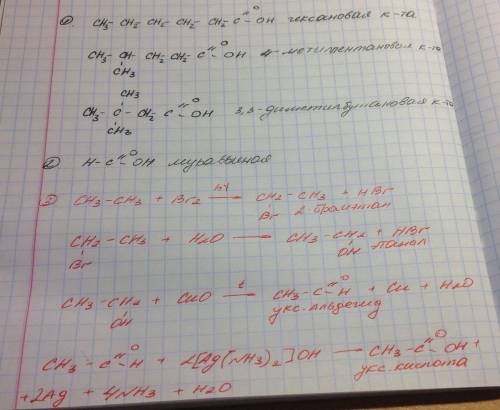 1. CH3- CH2- CH2- CH2- CH2- C=O-OH гексановая к-та
CH3- CH- CH2-CH2- C=O-OH 4-метилпентановая к-та
CH3
CH3
CH3- C- CH2- C=O-OH 3,3-диметилбутановая к-та
CH3
2. H-C=O-OH муравьиная
3. CH3-CH3 + Br2 →(hγ) CH2-CH3 + HBr
Br
CH2-CH3 + H2O → CH3-CH2 + HBr
Br OH
CH3-CH2 + CuO →(t) CH3-C=O-H + Cu + H2O
OH укс. альдегид
CH3-C=O-H + 2[Ag(NH3)2]OH → CH3-C=O-OH +
укс. кислота
+2Ag + 4NH3 + H2O